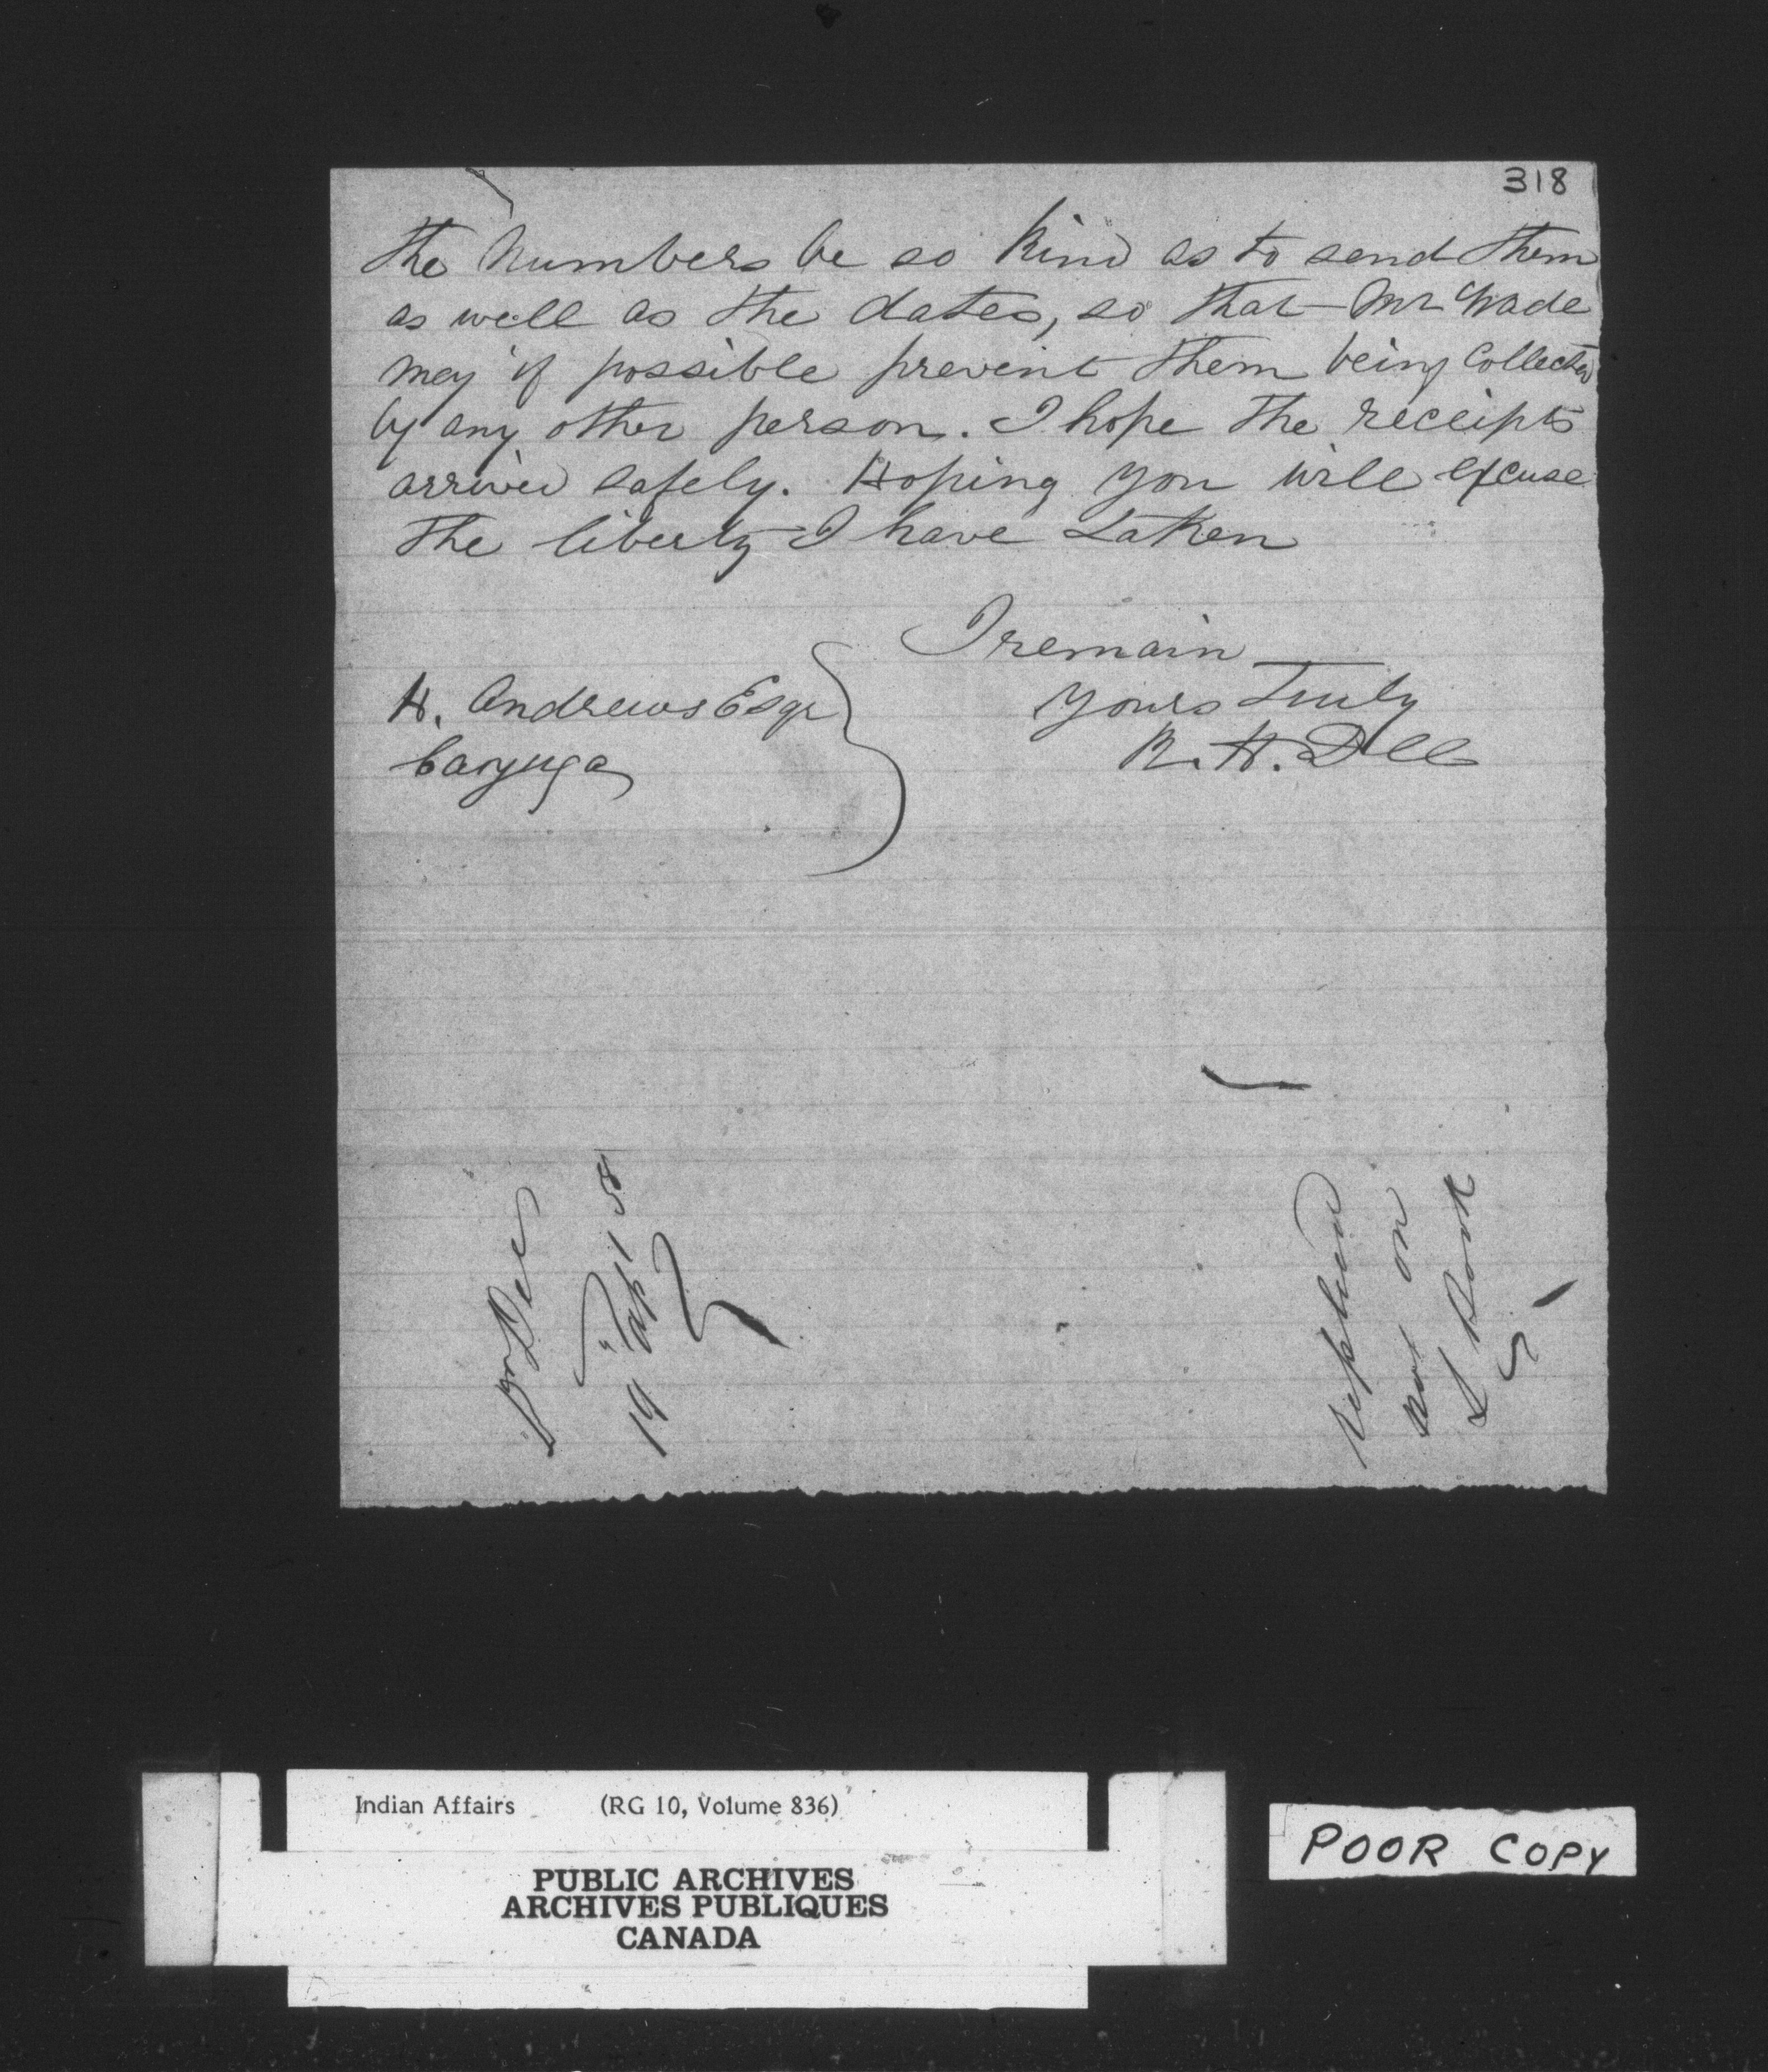 318
the Numbers be so kind as to send them
as well as the dates, so that Mr Wade
may if possible prevent them being Collected
by any other person. I hope the receipts
arrived safely. Hoping you will excuse
the liberty I have taken
I remain
H. Andrews Esqr
Yours Truly
Cayuga
R. H. Dee
Dee
19 " Ap 1 58
replied
not on
L Book
Indian Affairs (RG 10, Volume 836)
PUBLIC ARCHIVES
ARCHIVES PUBLIQUES
CANADA
POOR COPY